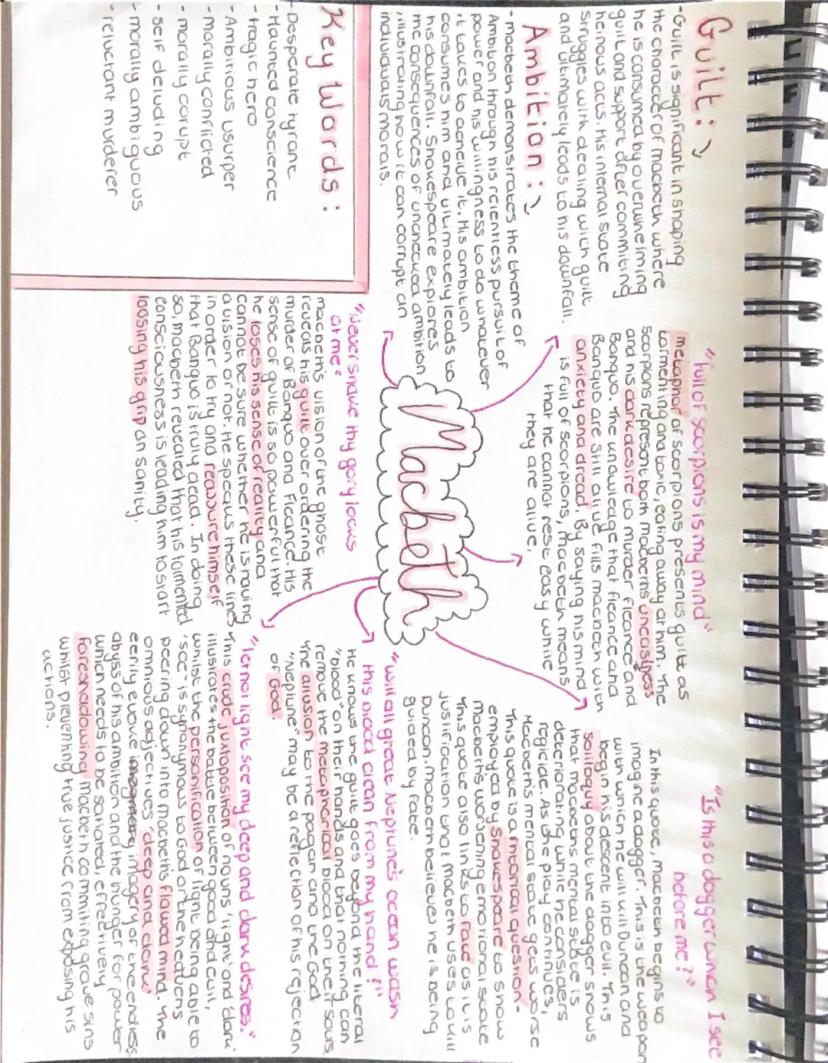 Guilt:
- Guilt is significant in shaping
the character of macbeth where
he is consumed by overwhelming
guilt and support after commiting
heinous acts. His internal state
struggles with dealing with guilt
and ultimately leads to his downfall.
Ambition:
- Macbeth demonstrates the theme of
Ambition through his relentless pursuit of
power and his willingness to do whatever
it takes to acheive it. His ambition
consumes him and ultimately leads to
his downfall. Shakespeare explores
the consequences of unchecked ambition
illustrating how it can corrupt an
individuals morals.
Key Words:
- Desperate tyrant
- Haunted conscience
- tragic hero
- Ambitious usurper
- morally conflicted
- morally corrupt
- self deluding
- morally ambiguous
- reluctant murderer
Macbeth
"full of scorpions is my mind"
metaphor of scorpions presents guilt as
tormenting and toxic, eating away at him. The
scorpions represent both macbeths uneasiness
and his dark desire to murder fleance and
Banquo. The knowledge that fleance and
Banquo are still alive fills macbeth with
anxiety and dread. By saying his mind
is full of scorpions, macbeth means
that he cannot rest easy while
they are alive.
"Never shake thy gory locks
at me"
macbeth's vision of the ghost
reveals his guilt over ordering the
murder of Banquo and Fleance. His
sense of guilt is so powerful that
he loses his sense of reality and
cannot be sure whether he is having
a vision or not. He speaks these lines
in order to try and reassure himself
that Banquo is truly dead. In doing
so, macbeth revealed that his tormented
consciousness is leading him to start
loosing his grip on sanity.
"Is this a dagger which I see
before me?"
In this quote, macbeth begins to
imagine a dagger. This is the weapon
with which he will kill Duncan and
begin his descent into evil. This
soliloquy about the dagger shows
that macbeths mental state is
deteriorating while he considers
regicide. As the play continues,
Macbeth's mental state gets worse
This quote is a rhetorical question-
employed by Shakespeare to show
macbeths worsening emotional state
This quote also links to fate as it is
justification that macbeth uses to kill
Duncan. Macbeth believes he is being
guided by fate.
"Will all great Neptune's ocean wash
this blood clean from my hand?"
He knows the guilt goes beyond the literal
"blood" on their hands and that nothing can
remove the metaphorical blood on their souls
The allusion to the pagan and the God
"Neptune" may be a reflection of his rejection
of God.
"let not light see my deep and dark desires."
This crude juxtaposition of nouns 'light' and 'dark'
illustrates the battle between good and evil,
whilst the personification of light being able to
'see' is synonymous to God or the heavens
peering down into macbeth's flawed mind. The
omnious adjectives 'deep and dark'
eerily evoke imagery of the endless
abyss of his ambition and the hunger for power
which needs to be satiated, effectively
foreshadowing macbeth commiting grave sins
whilst preventing true justice from exposing his
actions.